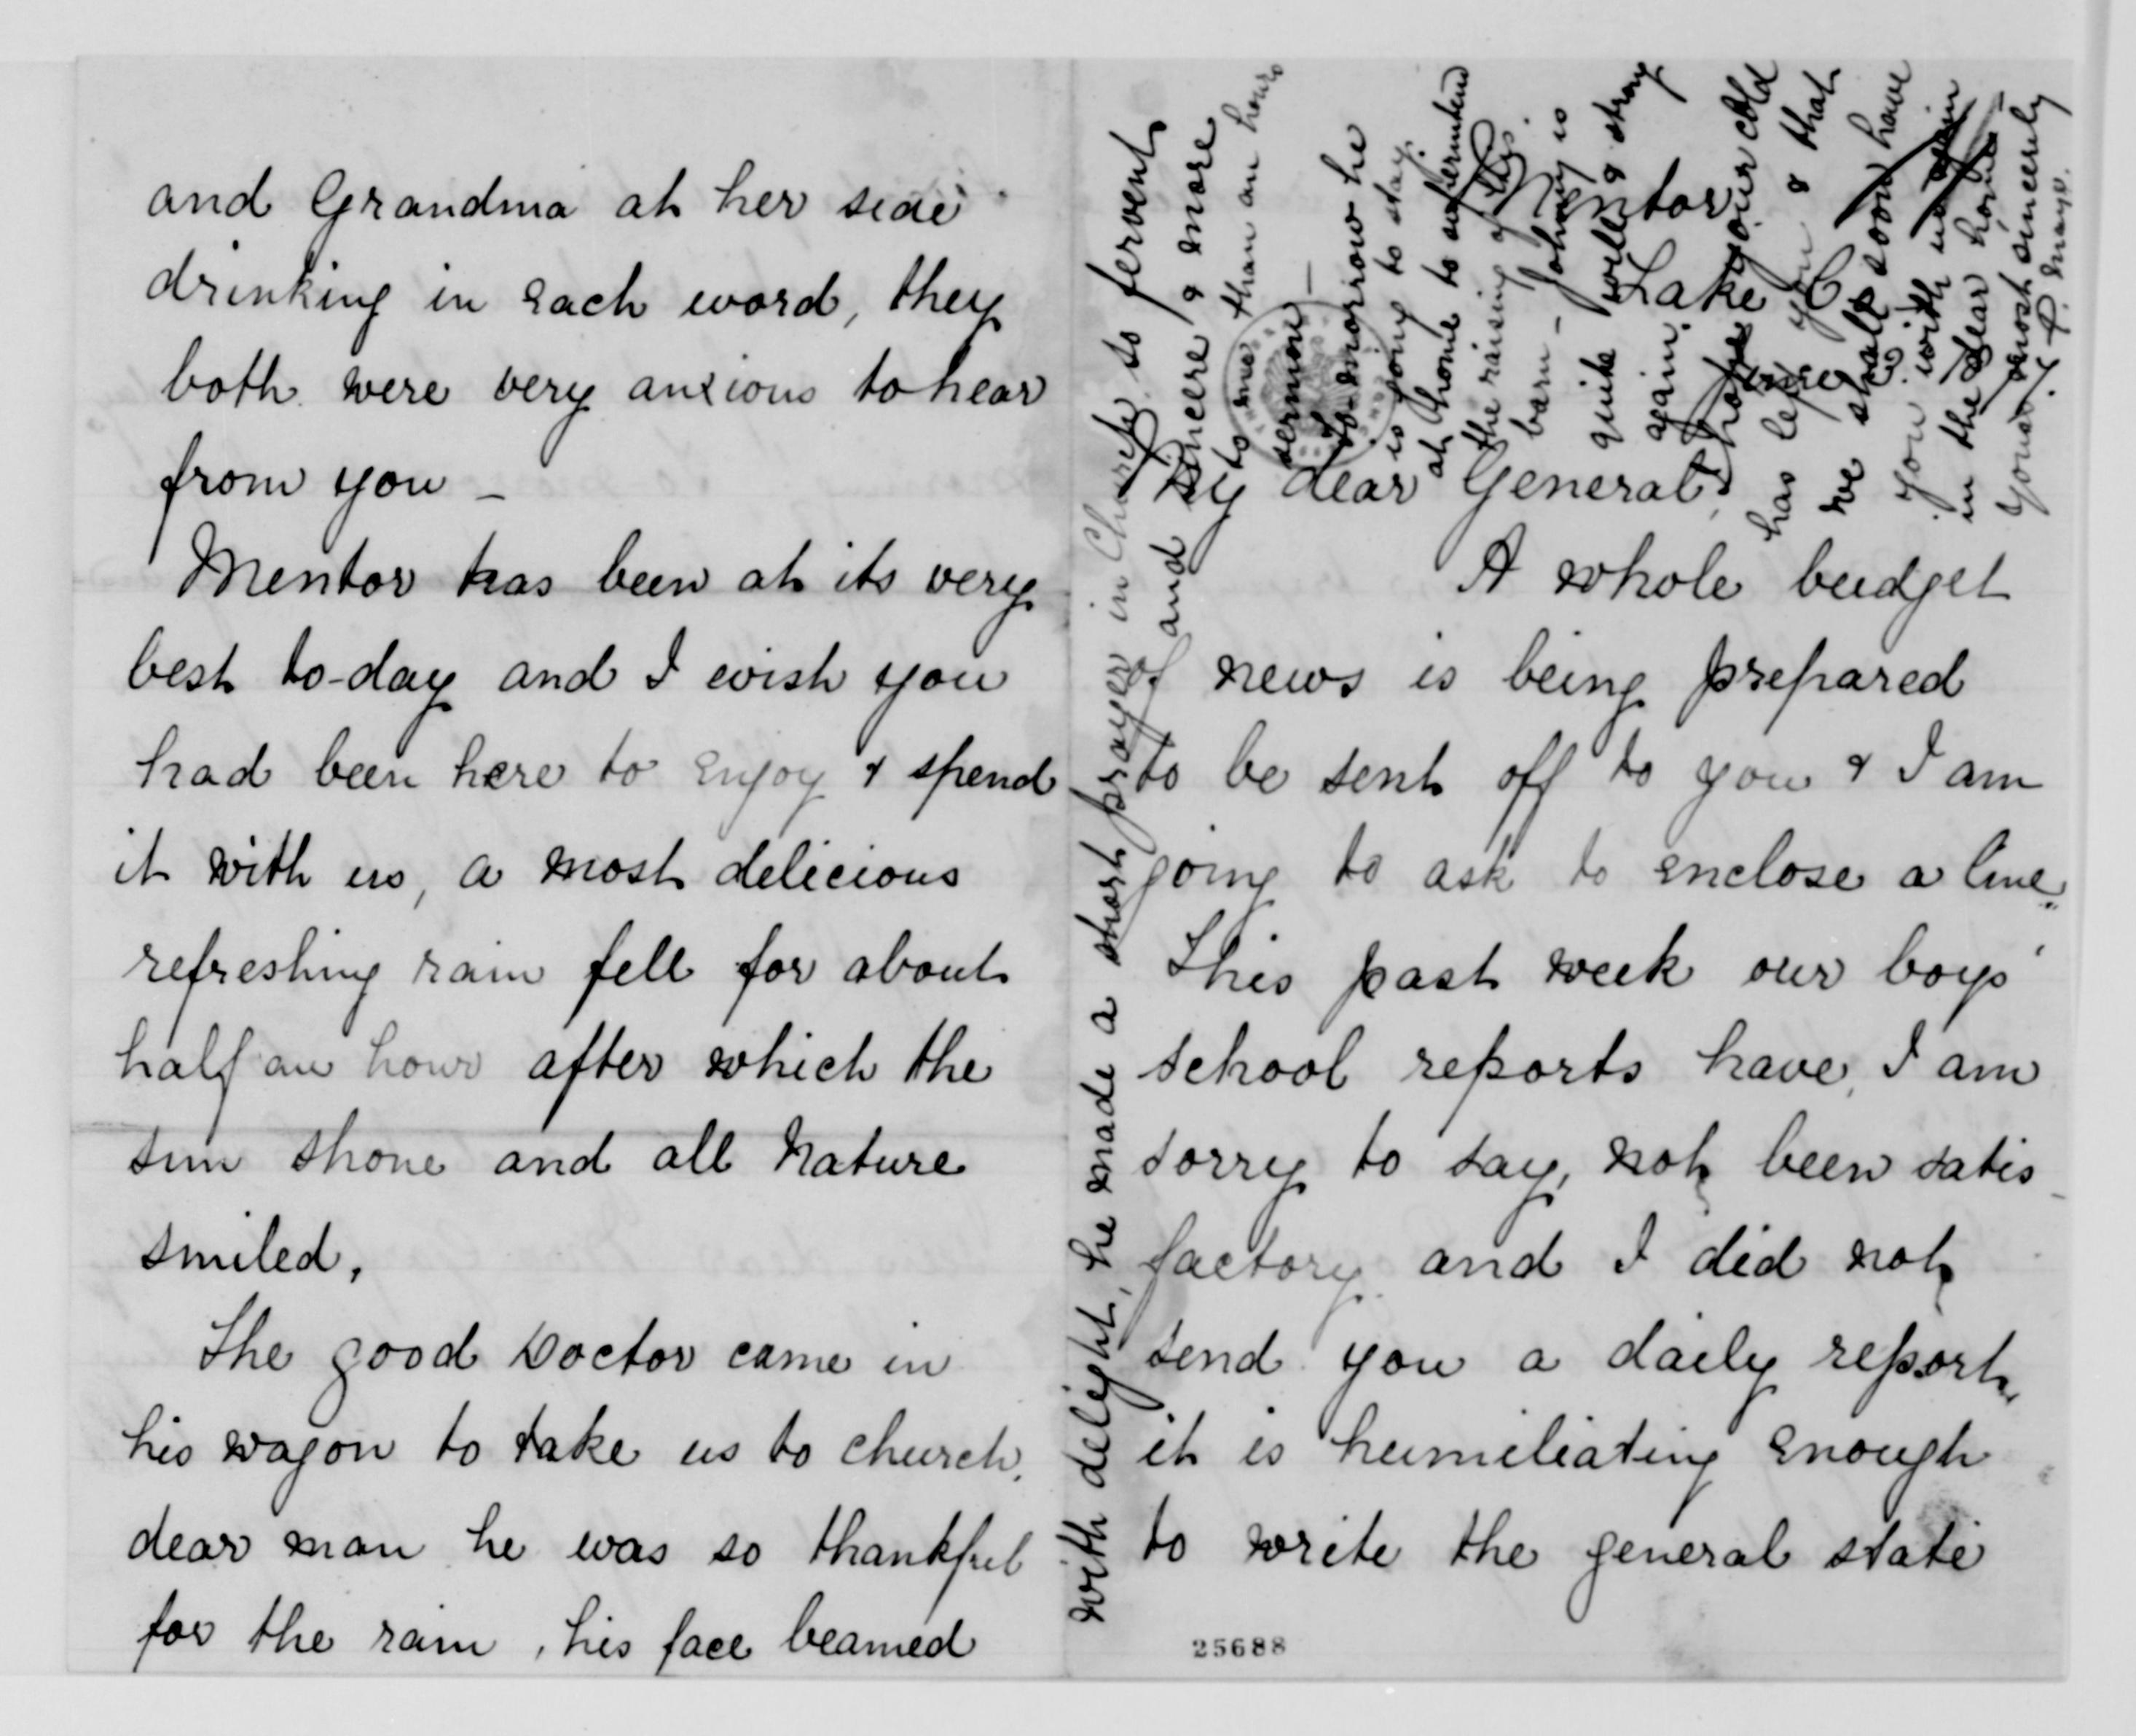 and Grandma at her side
drinking in each word, they
both were very anxious to hear
from you –
Mentor has been at its very
best to-day and I wish you
had been here to enjoy & spend
it with us, a most delicious
refreshing rain fell for about
half an hour after which the
sun shone and all Nature
smiled,
The good Doctor came in
his wagon to take us to church,
dear man he was so thankful
for the rain, his face beamed
Mentor
Lake C
June
My dear General,
A whole budget
of news is being prepared
to be sent off to you & I am
going to ask to enclose a line.
This past week our boys'
school reports have, I am
sorry to say, not been satis-
factory and I did not
send you a daily report,
it is humiliating enough
to write the general state
25688
with delight, he made a short prayer in Church so fervent
and sincere & more
to me than an hours
sermon –
To-morrow he
is going to stay
at home to superintend
the raising of his
barn – Johnny is
quite well & strong
again.
I hope your cold
has left you & that
we shall soon have
you with us again
in the dear home –
Yours most sincerely
Mays.